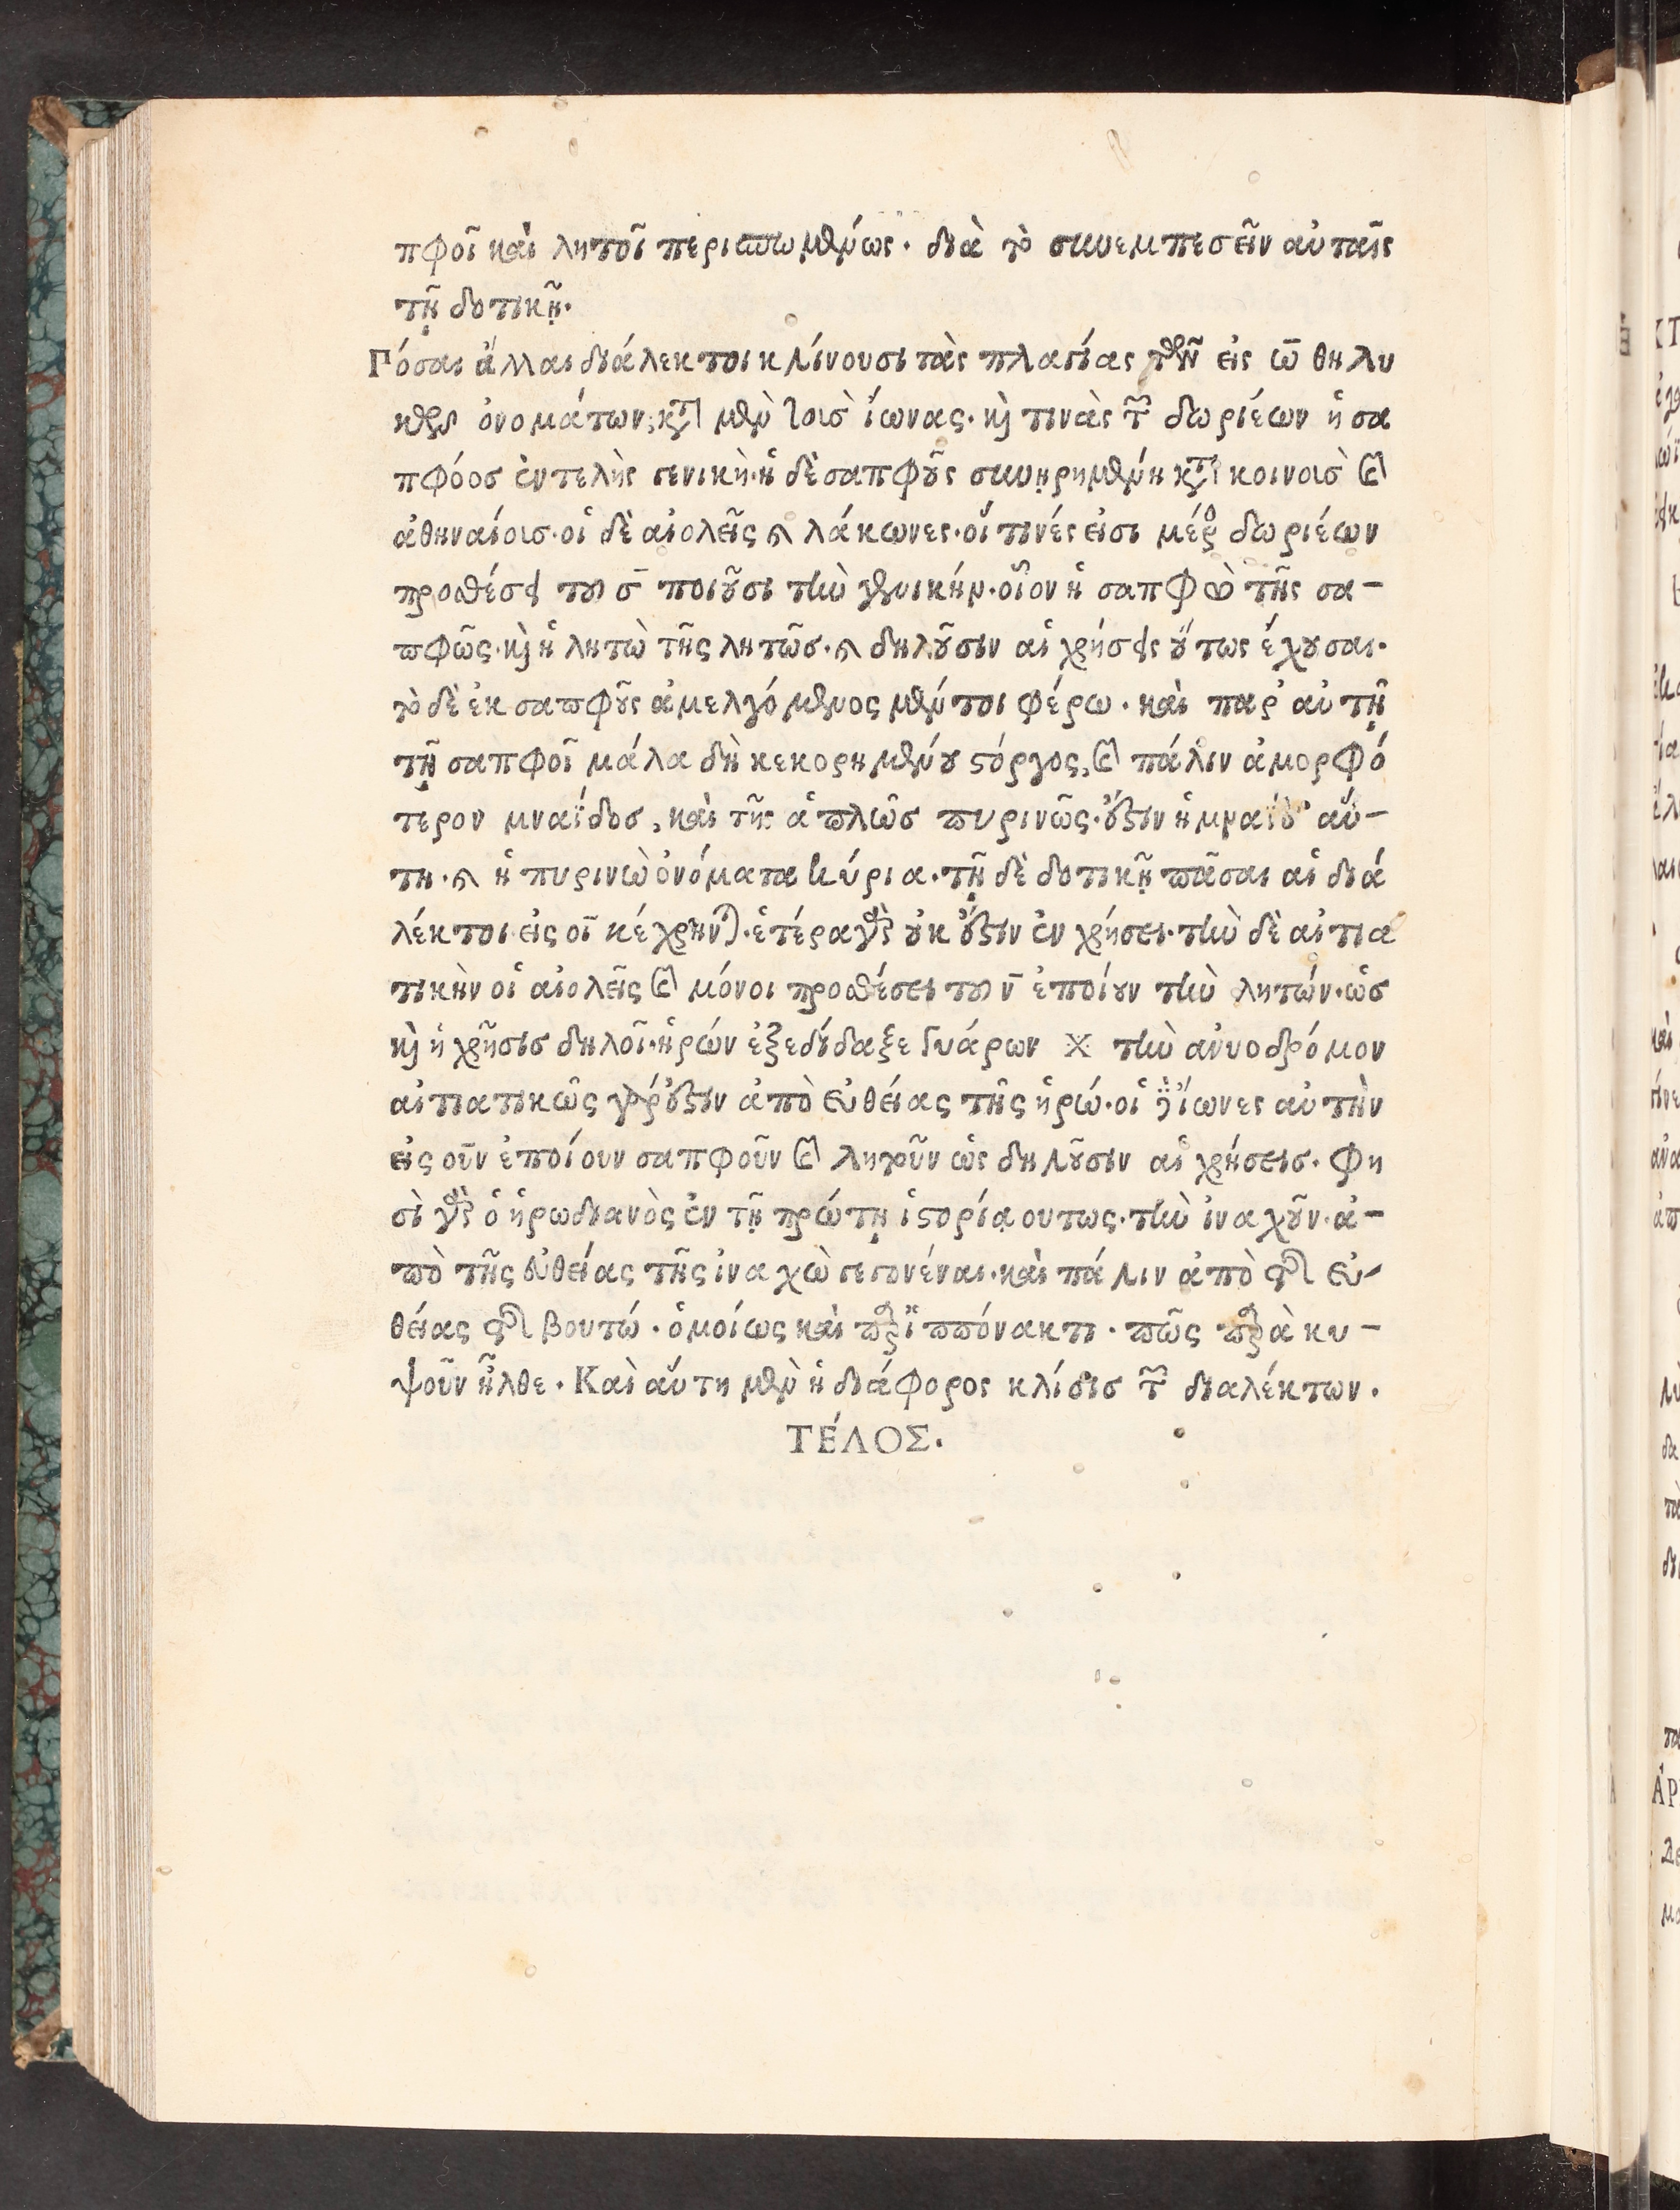 πφοῖ καὶ λητοῖ περισπωμένως. διὰ τὸ συνεμπεσεῖν αὐταῖς
τῇ δοτικῇ.
Πόσαι ἄλλαι διάλεκτοι κλίνουσι τὰς πλαγίας τῶν εἰς ω̄ θηλυ
κῶν ὀνομάτων, κατὰ μὲν τοισ̀ ἴωνας. καὶ τινὰς τῶν δωριέων ἡ σα
πφόοσ ἐντελὴς γενικὴ. ἡ δὲ σαπφοῦς συνῃρημένη κατὰ κοινοισ̀ καὶ
ἀθηναίοισ. οἱ δὲ αἰολεῖς καὶ λάκωνες. οἵ τινές εἰσι μέρος δωριέων
προσθέσει τοῦ σ̄ ποιοῦσι τὴν γενικήν. οἷον ἡ σαπφὼ τῆς σα-
πφῶς. καὶ ἡ λητὼ τῆς λητῶσ. καὶ δηλοῦσιν αἱ χρήσεις οὕτως ἔχουσαι.
τὸ δὲ ἐκ σαπφοῦς ἀμελγόμενος μέντοι φέρω. καὶ παρ' αὐτῇ
τῇ σαπφοῖ μάλα δὴ κεκορημένου στόργος, καὶ πάλιν ἀμορφό
τερον μναΐδοσ, καὶ τῆς ἁπλῶσ πυρινῶς. ἔστιν ἡ μναῒς αὕ-
τη. καὶ ἡ πυρινὼ ὀνόματα κύρια. τῇ δὲ δοτικῇ πᾶσαι αἱ διά
λέκτοι εἰς οῖ κέχρηνται. ἑτέρα γὰρ οὐκ ἔστιν ἐν χρήσει. τὴν δὲ αἰτια
τικὴν οἱ αἰολεῖς καὶ μόνοι προσθέσει τοῦ ν̄ ἐποίουν τὴν λητών. ὡσ
καὶ ἡ χρῆσισ δηλοῖ. ἡρών ἐξεδίδαξε γυάρων  τὴν ἀνυοδρόμον
αἰτιατικῶς γάρ ἔστιν ἀπὸ εὐθείας τῆς ἡρώ. οἱ δὲ ἴωνες αὐτὴν
εἰς οῦν ἐποίουν σαπφοῦν καὶ λητοῦν ὡς δηλοῦσιν αἱ χρήσεισ. φη
σὶ γὰρ ὁ ἡρωδιανὸς ἐν τῇ πρώτῃ ἱστορίᾳ ουτως. τὴν ἰναχοῦν. ἀ-
πὸ τῆς εὐθείας τῆς ἰναχὼ γεγονέναι. καὶ πάλιν ἀπὸ τῆς εὐ-
θείας τῆς βουτώ. ὁμοίως καὶ παρὰ ἱππόνακτι. πῶς παρὰ κυ-
ψοῦν ἦλθε. Καὶ αὕτη μὲν ἡ διάφορος κλίσισ τῶν διαλέκτων.
ΤΈΛΟΣ.